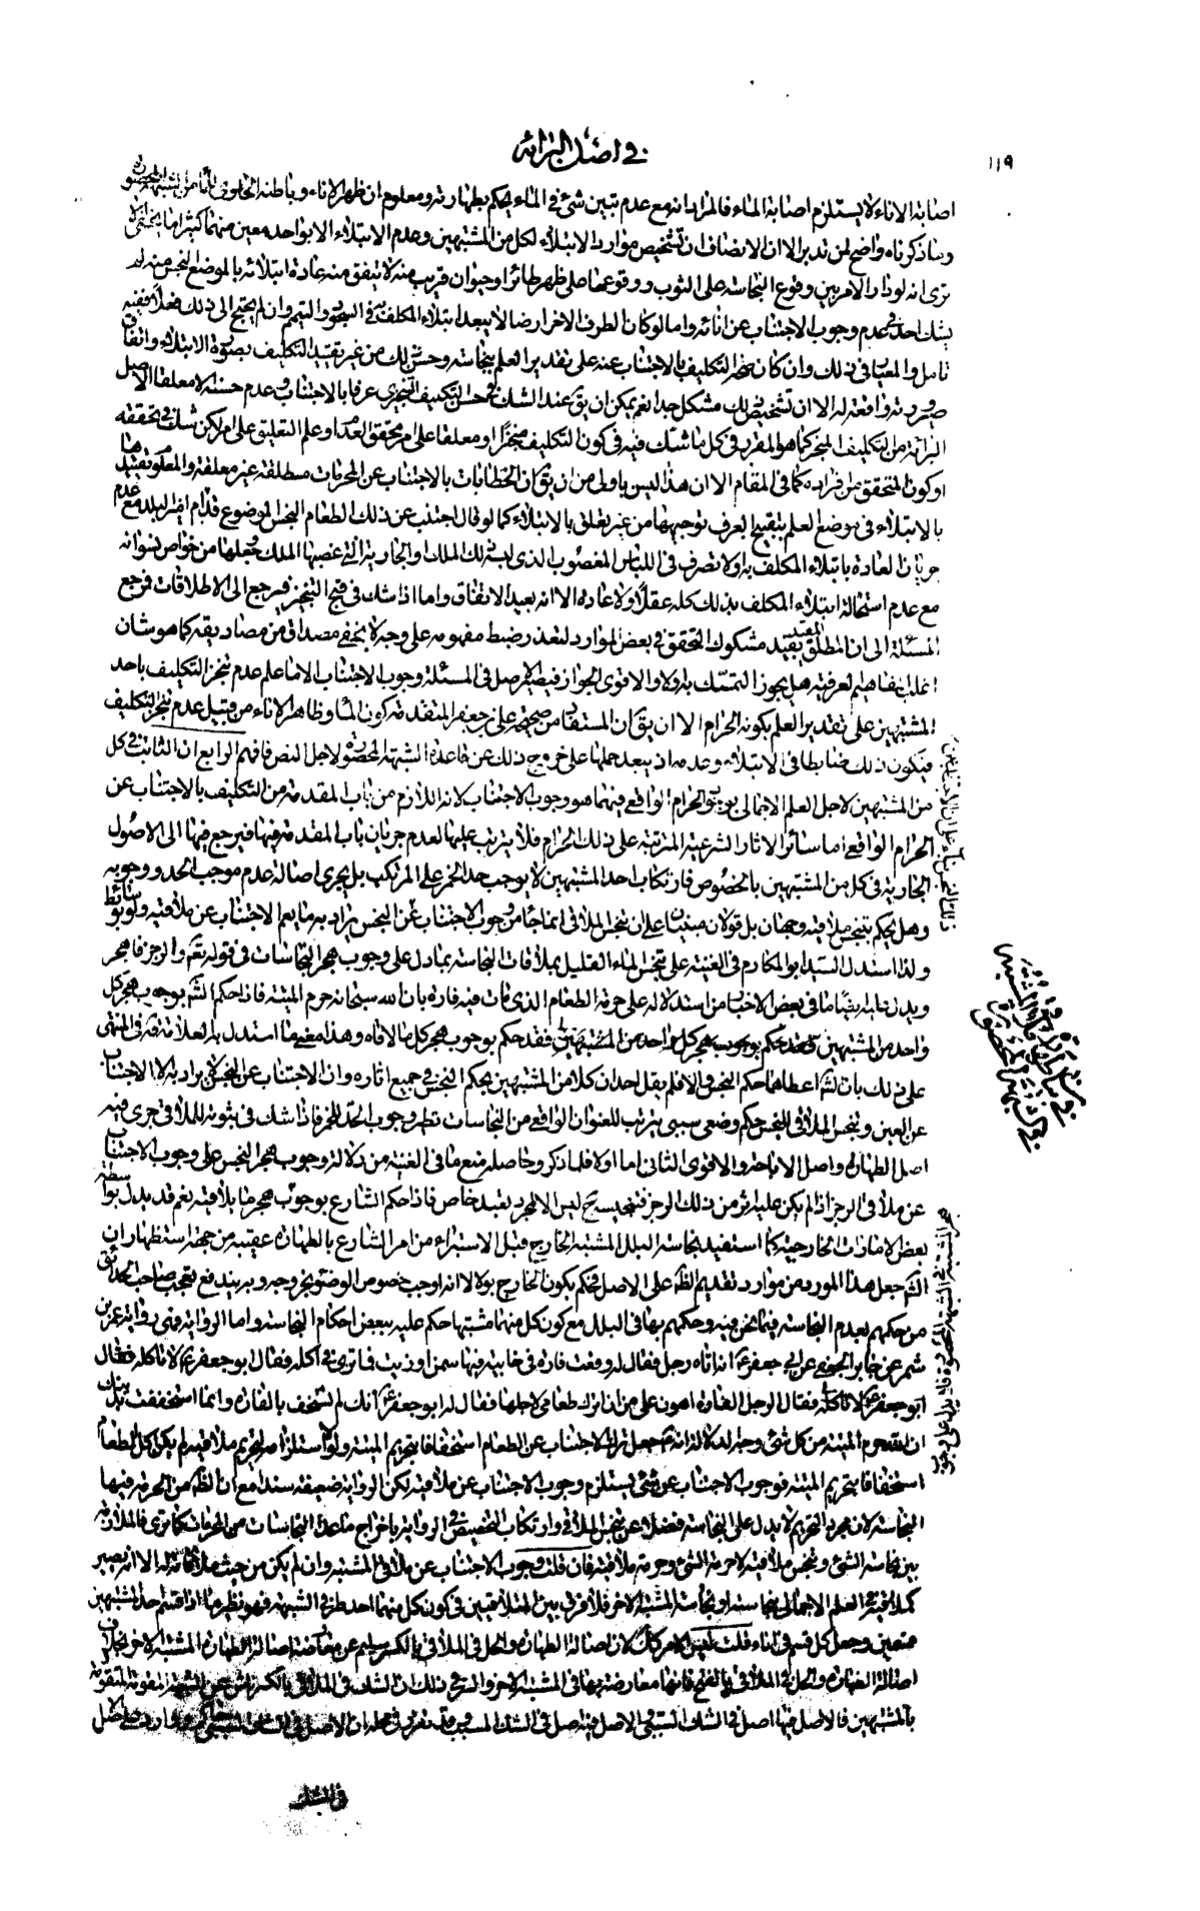 في اصل البرائة
١١٩
اصابة الاناء لا يستلزم اصابة الماء فالمراد انه مع عدم تبين شئ في الماء يحكم بطهارته ومعلوم ان ظهر الاناء وباطنه الحاوي للماء من الشبهة المحصورة
وما ذكرناه واضح لمن تدبر الا ان الانصاف ان تشخيص موارد الابتلاء لكل من المشتبهين وعدم الابتلاء الا بواحد معين منهما كثيرا ما يخفى الا
ترى انه لو دار الامر بين وقوع النجاسة على الثوب ووقوعها على ظهر طائر او حيوان قريب منه لا يتفق منه عادة ابتلائه بالموضع النجس منه لم
يشك احد في عدم وجوب الاجتناب عن اناثه واما لو كان الطرف الاخر ارضا لا يبعد ابتلاء المكلف به في السجود والتيمم وان لم يحتج الى ذلك فعلا ففيه
تامل والمعيار في ذلك وان كان صحة التكليف بالاجتناب عنه على تقدير العلم بنجاسته وحسن ذلك من غير تقييد التكليف بصورة الابتلاء واتفاق
صيرورته واقعة له الا ان تشخيص ذلك مشكل جدا نعم يمكن ان يق عند الشك في حسن التكليف التنجيزي عرفا بالاجتناب وعدم حسنه الا معلقا الاصل
البرائة من التكليف المنجز كما هو المقرر في كل ما شك فيه في كون التكليف منجزا او معلقا على امر محقق العدم او علم التعليق على امر لكن شك في تحققه
او كون المتحقق من افراده كما في المقام الا ان هذا ليس باولى من ان يق ان الخطابات بالاجتناب عن المحرمات مطلقة غير معلقة والمعلوم تقييدها
بالابتلاء في موضع العلم بتقبيح العرف توجيهها من غير تعلق بالابتلاء كما لو قال اجتنب عن ذلك الطعام النجس الموضوع قدام امير البلد مع عدم
جريان العادة بابتلاء المكلف به او لا تصرف في اللباس المغصوب الذي لبسه ذلك الملك او الجارية التي غصبها الملك وجعلها من خواص نسوانه
مع عدم استحالة ابتلاء المكلف بذلك كله عقلا ولا عادة الا انه بعيد الاتفاق واما اذا شك في قبح التنجيز فيرجع الى الاطلاقات فمرجع
المسئلة الى ان المطلق المقيد بقيد مشكوك التحقق في بعض الموارد لتعذر ضبط مفهومه على وجه لا يخفى مصداق من مصاديقه كما هو شان
اغلب المفاهيم العرفية هل يجوز التمسك به او لا والاقوى الجواز فيصير الاصل في المسئلة وجوب الاجتناب الا ما علم عدم تنجز التكليف باحد
المشتبهين على تقدير العلم بكونه الحرام الا ان يق ان المستفاد من صحيحة علي بن جعفر المتقدمة كون الماء وظاهر الاناء من قبيل عدم تنجز التكليف
فيكون ذلك ضابطا في الابتلاء وعدمه اذ يبعد حملها على خروج ذلك عن قاعدة الشبهة المحصورة لاجل النص فافهم الرابع ان الثابت في كل
من المشتبهين لاجل العلم الاجمالي بوجود الحرام الواقعي فيهما هو وجوب الاجتناب لانه اللازم من باب المقدمة من التكليف بالاجتناب عن
الحرام الواقعي اما سائر الاثار الشرعية المترتبة على ذلك الحرام فلا يترتب عليهما لعدم جريان باب المقدمة فيها فيرجع فيها الى الاصول
الجارية في كل من المشتبهين بالخصوص فارتكاب احد المشتبهين لا يوجب حد الخمر على المرتكب بل يجري اصالة عدم موجب الحد ووجوبه
وهل يحكم بتنجس ملاقيه وجهان بل قولان مبنيان على ان تنجس الملاقي انما جاء من وجوب الاجتناب عن النجس بان يراد به ما يعم الاجتناب عن ملاقيه ولو بوسائط
ولذا استدل السيد ابو المكارم في الغنية على تنجس الماء القليل بملاقات النجاسة بما دل على وجوب هجر النجاسات في قوله تعم والرجز فاهجر
ويدل عليه ايضا ما في بعض الاخبار من استدلاله على حرمة الطعام الذي مات فيه فارة بان الله سبحانه حرم الميتة فاذا حكم الشم بوجوب هجر كل
واحد من المشتبهين فقد حكم بوجوب هجر كل ما لاقاه وهذا معنى ما استدل به العلامة ره في المنتهى
على ذلك بان الشم اعطاهما حكم النجس والا فلم يقل احد ان كلا من المشتبهين بحكم النجس في جميع اثاره وان الاجتناب عن النجس لا يراد به الا الاجتناب
عن العين وتنجس الملاقي للنجس حكم وضعي سببي يترتب للعنوان الواقعي من النجاسات نظير وجوب الحد للخمر فاذا شك في ثبوته للملاقي جرى فيه
اصل الطهارة واصل الاباحة والاقوى الثاني اما اولا فلما ذكر وحاصله منع ما في الغنية من دلالة وجوب هجر النجس على وجوب الاجتناب
عن ملاقي الرجز اذا لم يكن عليه اثر من ذلك الرجز فتنجيسه ح ليس الا لمجرد تعبد خاص فاذا حكم الشارع بوجوب هجر ما يلاقيه نعم قد يدل بواسطة
بعض الامارات الخارجية كما استفيد نجاسة البلل المشتبه الخارج قبل الاستبراء من امر الشارع بالطهارة عقيبه من جهة استظهار ان
الشم جعل هذا المورد من موارد تقديم الظم على الاصل فحكم بكون الخارج بولا لا انه اوجب خصوص الوضوء بخروجه وبه يندفع تعجب صاحب الحدائق
من حكمهم بعدم النجاسة فيما نحن فيه وحكمهم بها في البلل مع كون كل منهما مشتبها حكم عليه ببعض احكام النجاسة واما الرواية فهي رواية عمرو بن
شمر عن جابر الجعفي عن ابي جعفر ع انه اتاه رجل فقال له وقعت فارة في خابية فيها سمن او زيت فما ترى في اكله فقال ابو جعفر ع لا تاكله فقال
ابو جعفر ع لا تاكله فقال الرجل الفارة اهون علي من ان اترك طعامي لاجلها فقال له ابو جعفر ع انك لم تستخف بالفارة وانما استخففت بدينك
ان الله حرم الميتة من كل شئ وجه الدلالة انه جعل ترك الاجتناب عن الطعام استخفافا بتحريم الميتة ولولا استلزامه لتحريم ملاقيه لم يكن اكل الطعام
استخفافا بتحريم الميتة فوجوب الاجتناب عن شئ يستلزم وجوب الاجتناب عن ملاقيه لكن الرواية ضعيفة سندا مع ان الظم من الحرمة فيها
النجاسة لان مجرد التحريم لا يدل على النجاسة فضلا عن تنجس الملاقي وارتكاب التخصيص في الرواية باخراج ما عدا النجاسات من المحرمات كما ترى فالملازمة
بين نجاسة الشئ وتنجس ملاقيه لا حرمة الشئ وحرمة ملاقيه فان قلت وجوب الاجتناب عن ملاقي المشتبه وان لم يكن من حيث ملاقاته له الا انه يصير
كملاقيه في العلم الاجمالي بنجاسته او نجاسة المشتبه الاخر فلا فرق بين المتلاقيين في كون كل منهما احد طرفي الشبهة فهو نظير ما اذا قسم احد المشتبهين
قسمين وجعل كل قسم في اناء قلت ليس الامر كك لان اصالة الطهارة والحل في الملاقي بالكسر سليم عن معارضة اصالة الطهارة المشتبه الاخر بخلاف
اصالة الطهارة والحل في الملاقى بالفتح فانها معارضة بهما في المشتبه الاخر والسر في ذلك ان الشك في الملاقي بالكسر ناش عن الشبهة المتقومة
بالمشتبهين فالاصل فيهما اصل في الشك السببي والاصل فيه اصل في الشك المسببي وقد تقرر في محله ان الاصل في الشك السببي حاكم ووارد على الاصل
في الشك